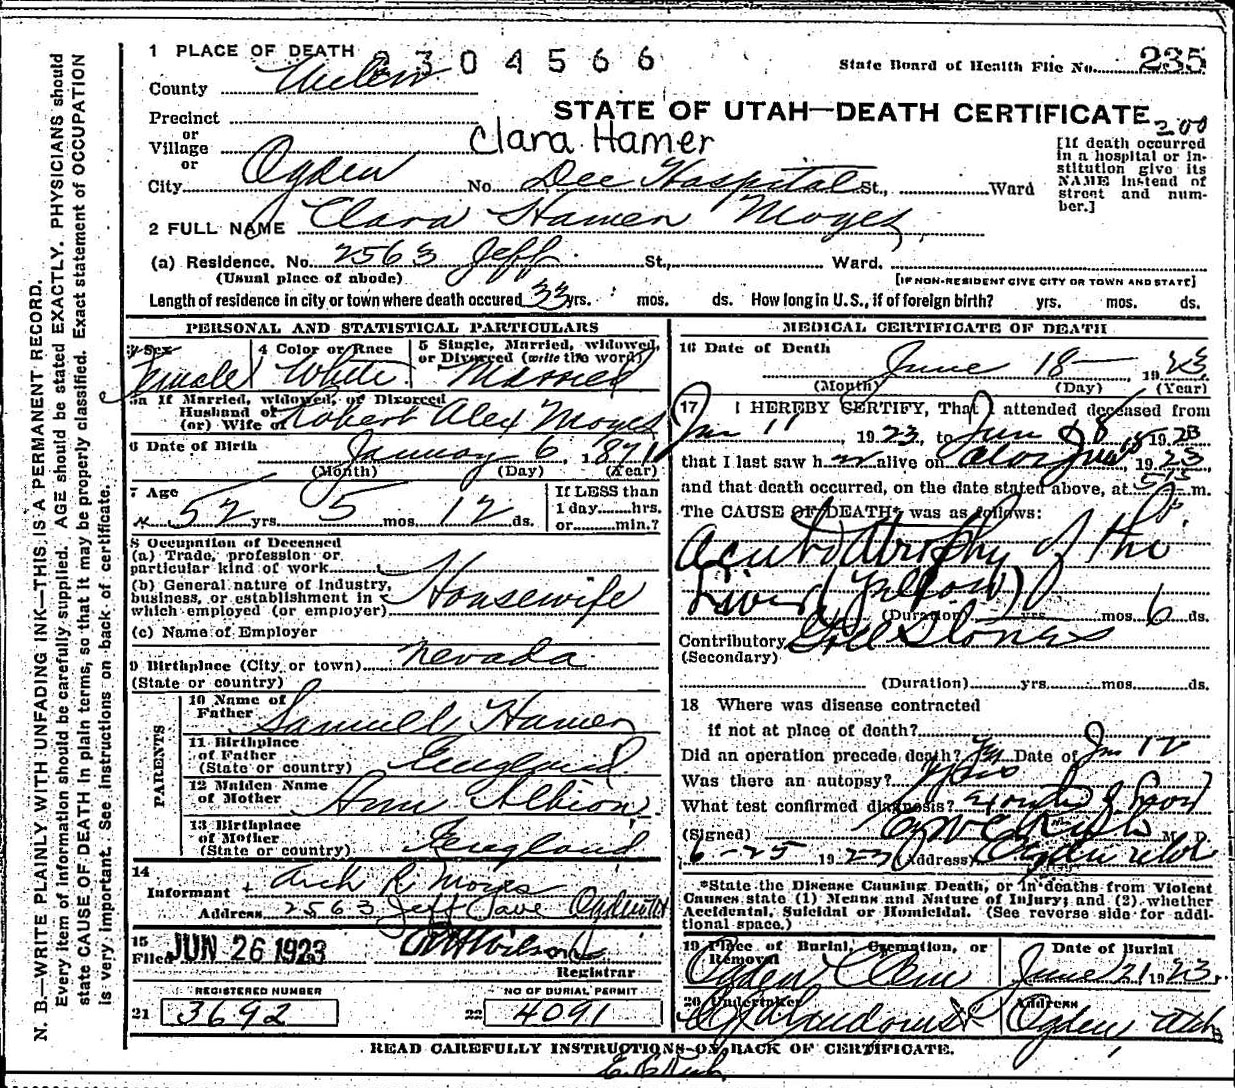 1 PLACE OF DEATH 2304566
State Board of Health File No. 235
County Weber
STATE OF UTAH—DEATH CERTIFICATE
Precinct
or
Village
Clara Hamer
200
or
City Ogden No. Dee Hospital St., Ward
[If death occurred
in a hospital or in-
stitution give its
NAME instead of
street and num-
ber.]
2 FULL NAME Clara Hamer Moyes
(a) Residence. No. 2563 Jeff. St., Ward.
(Usual place of abode)
[IF NON-RESIDENT GIVE CITY OR TOWN AND STATE]
Length of residence in city or town where death occured 33 yrs. mos. ds. How long in U.S., if of foreign birth? yrs. mos. ds.
PERSONAL AND STATISTICAL PARTICULARS
3 Sex
Female
4 Color or Race
White
5 Single, Married, widowed,
or Divorced (write the word)
Married
5a If Married, widowed, or Divorced
Husband of
(or) Wife of Robert Alex Moyes
6 Date of Birth January 6, 1871
(Month) (Day) (Year)
7 Age
52 yrs. 5 mos. 12 ds.
If LESS than
1 day......hrs.
or......min.?
8 Occupation of Deceased
(a) Trade, profession or
particular kind of work
(b) General nature of industry,
business, or establishment in
which employed (or employer)
Housewife
(c) Name of Employer
9 Birthplace (City or town) Nevada
(State or country)
PARENTS
10 Name of
Father Samuel Hamer
11 Birthplace
of Father
(State or country) England
12 Maiden Name
of Mother Ann Albion
13 Birthplace
of Mother
(State or country) England
14
Informant Arch R Moyes
Address 2563 Jeff Ave Ogden Ut
15
Filed JUN 26 1923
Registrar
REGISTERED NUMBER
21 3692
NO OF BURIAL PERMIT
22 4091
MEDICAL CERTIFICATE OF DEATH
16 Date of Death
June 18 1923
(Month) (Day) (Year)
17 I HEREBY CERTIFY, That I attended deceased from
Jun 11, 1923, to Jun 18 1923
that I last saw her alive on 1923
and that death occurred, on the date stated above, at m.
The CAUSE OF DEATH* was as follows:
Acute Atrophy of the
Liver (Yellow)
(Duration) yrs. mos. 6 ds.
Contributory Gall Stones
(Secondary)
(Duration) yrs. mos. ds.
18 Where was disease contracted
if not at place of death?
Did an operation precede death? Yes Date of Jun 12
Was there an autopsy?
What test confirmed diagnosis?
(Signed) M. D.
6-25 1923 (Address) Ogden Utah
*State the Disease Causing Death, or in deaths from Violent
Causes state (1) Means and Nature of Injury; and (2) whether
Accidental, Suicidal or Homicidal. (See reverse side for addi-
tional space.)
19 Place of Burial, Cremation, or
Removal
Ogden Cem
Date of Burial
June 21 1923
20 Undertaker
Address
Ogden Utah
READ CAREFULLY INSTRUCTIONS ON BACK OF CERTIFICATE.
N. B.—WRITE PLAINLY WITH UNFADING INK—THIS IS A PERMANENT RECORD.
Every item of information should be carefully supplied. AGE should be stated EXACTLY. PHYSICIANS should
state CAUSE OF DEATH in plain terms, so that it may be properly classified. Exact statement of OCCUPATION
is very important. See instructions on back of certificate.